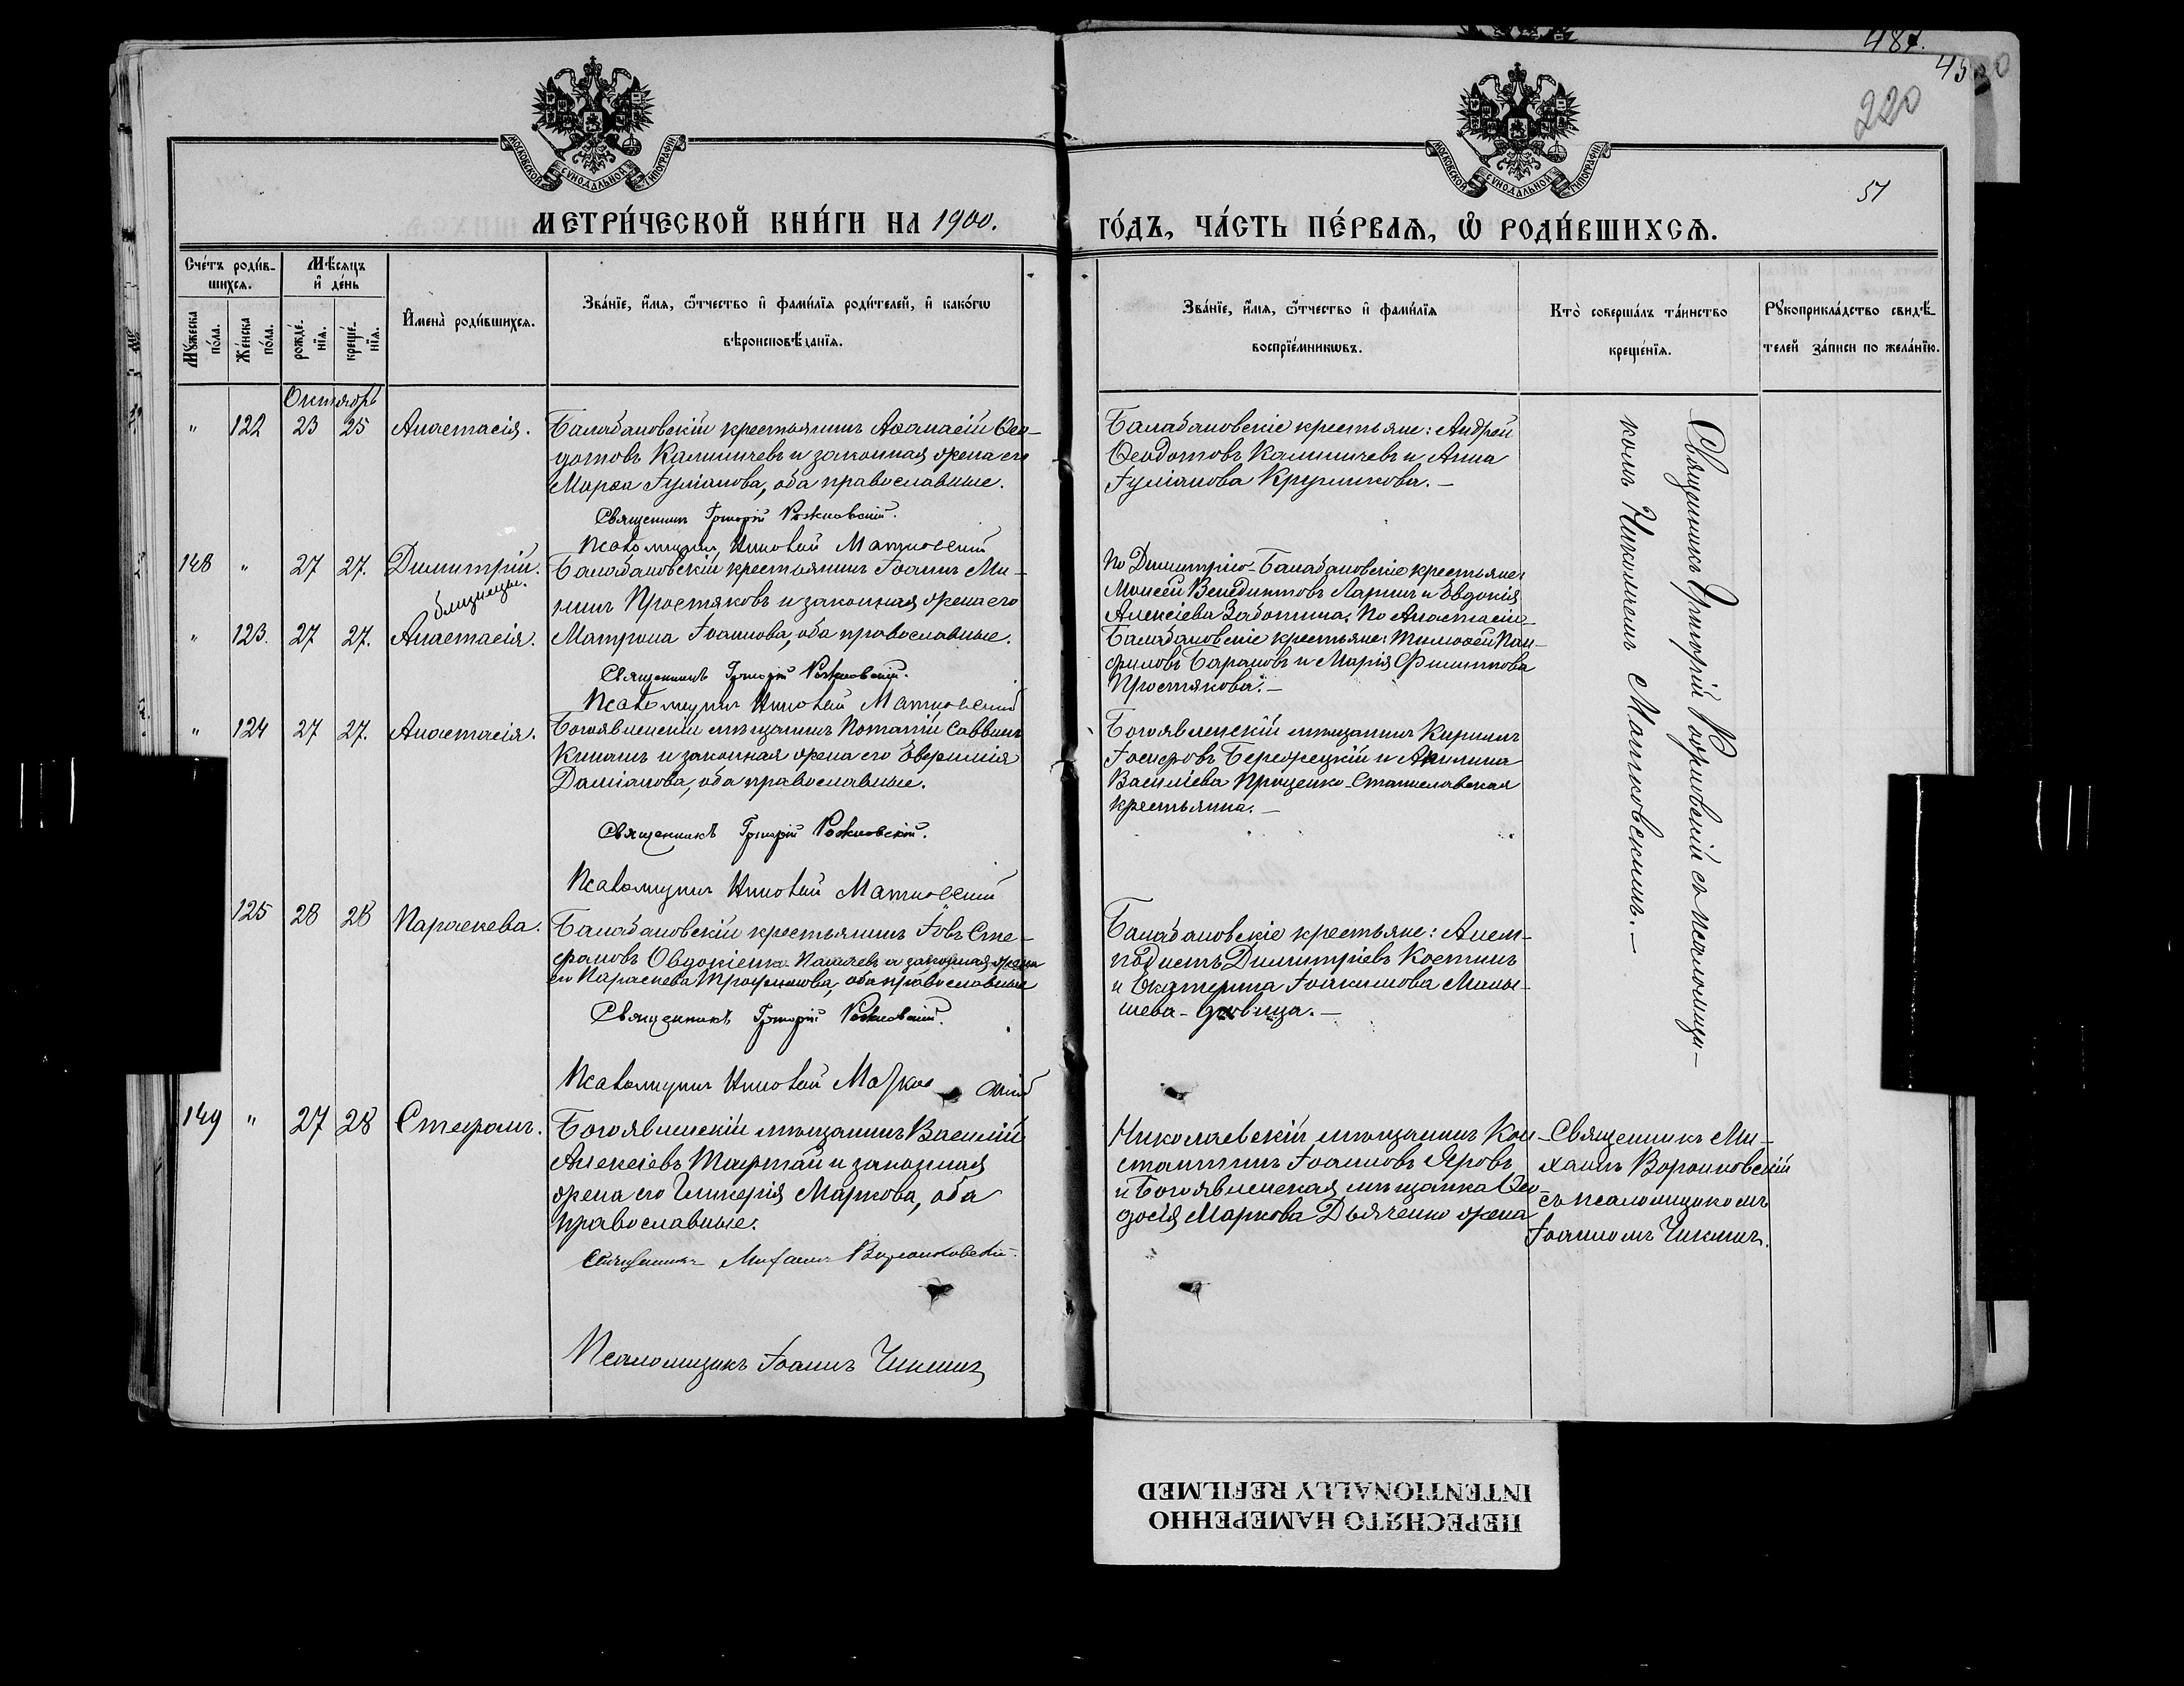 487.
220
51
МОСКОВСКОЙ СѴНОДАЛЬНОЙ ТИПОГРАФІИ
МОСКОВСКОЙ СѴНОДАЛЬНОЙ ТИПОГРАФІИ
МЕТРИ́ЧЕСКОЙ КНИ́ГИ НА 1900.
ГО́ДЪ, ЧА́СТЬ ПЕ́РВАѦ, Ѽ РОДИ́ВШИХСѦ.
Сче́тъ роди́в-
шихсѧ.
Мѣ́сѧцъ
и҆ де́нь
Мꙋ́жеска по́ла.
Же́нска по́ла.
рожде́нїѧ.
креще́нїѧ.
И҆мена̀ роди́вшихсѧ.
Зва́нїе, и҆́мѧ, ѻ҆́тчество и҆ фами́лїѧ роди́телей, и҆ како́гѡ
вѣроисповѣ́данїѧ.
Зва́нїе, и҆́мѧ, ѻ҆́тчество и҆ фами́лїѧ
воспрїе́мникѡвъ.
Кто̀ соверша́лъ та́инство
креще́нїѧ.
Рꙋкоприкла́дство свидѣ́-
телей за́писи по жела́нїю.
Октябрь
" 122 23 25 Анастасія. Балабановскій крестьянинъ Аѳанасій Ѳео-
дотовъ Калиничевъ и законная жена его
Марѳа Іуліанова, оба православные.
Священникъ Григорій Рожновскій.
Псаломщикъ Николай Матковскій
Балабановскіе крестьяне: Андрей
Ѳеодотовъ Калиничевъ и Анна
Іуліанова Кружикова.—
148 " 27 27. Димитрій. Балабановскій крестьянинъ Іоаннъ Ми-
близнецы.
нинъ Простяковъ и законная жена его
" 123. 27 27. Анастасія. Матрона Іоаннова, оба православные.
Священникъ Григорій Рожновскій.
Псаломщикъ Николай Матковскій
По Димитріѣ-Балабановскіе крестьяне:
Моисей Венедиктовъ Ларинъ и Евдокія
Алексіева Заботина. По Анастасіи-
Балабановскіе крестьяне: Тимоѳей Пан-
филовъ Барановъ и Марія Филиппова
Простякова.—
" 124 27 27. Анастасія. Богоявленскій мѣщанинъ Потапій Саввинъ
Кинашъ и законная жена его Евфимія
Даміанова, оба православные.
Священникъ Григорій Рожновскій.
Псаломщикъ Николай Матковскій
Богоявленскій мѣщанинъ Кириллъ
Іосифовъ Бережецкій и Акилина
Василіева Проценко-Станиславская
крестьянка.—
125 28 28 Параскева. Балабановскій крестьянинъ Іовъ Сте-
фановъ Овдокіенко Палачевъ и законная жена
его Параскева Трофимова, оба православные
Священникъ Григорій Рожновскій.
Псаломщикъ Николай Матковскій
Балабановскіе крестьяне:
Димитріевъ Костинъ
и Екатерина Іоакимова Малы-
шева-дѣвица.—
Священникъ Григорій Рожновскій съ псаломщи-
комъ Николаемъ Матковскимъ.—
149 " 27 28 Стефанъ. Богоявленскій мѣщанинъ Василій
Алексіевъ Шарпай и законная
жена его Гликерія Маркова, оба
православные.
Священникъ Михаилъ Воронковскій.
Псаломщикъ Іоаннъ Чикинъ
Николаевскій мѣщанинъ Кон-
стантинъ Іоанновъ Яровъ
и Богоявленская мѣщанка Ѳео-
досія Маркова Дьяченко жена
Священникъ Ми-
хаилъ Воронковскій
съ псаломщикомъ
Іоанномъ Чикинъ.
ПЕРЕСНЯТО НАМЕРЕННО
INTENTIONALLY REFILMED